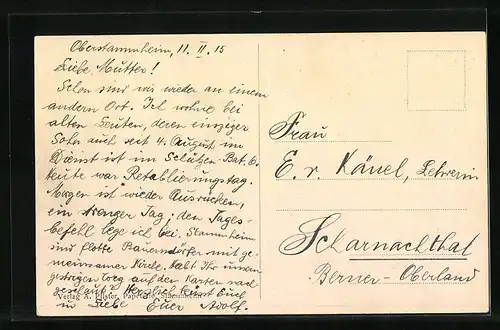 Oberstammheim, 11. II. 15
Liebe Mutter!
Schon sind wir wieder an einem
andern Ort. Ich wohne bei
alten Leuten, deren einziger
Sohn auch seit 4. August im
Dienst ist im Schützen-Bat. 6.
Heute war Retablierungstag.
Morgen ist wieder Ausrücken,
ein strenger Tag; den Tages-
befehl lege ich bei. Stammheim
sind flotte Bauerndörfer mit ge-
meinsamer Kirche. Habt Ihr unsern
gestrigen Weg auf der Karten nach
geschaut? Herzlich küsst Euch
in Liebe Euer Adolf.
Verlag A. Pfister, Papeterie,
Frau
E. v. Känel, Lehrerin
Scharnachthal
Berner-Oberland